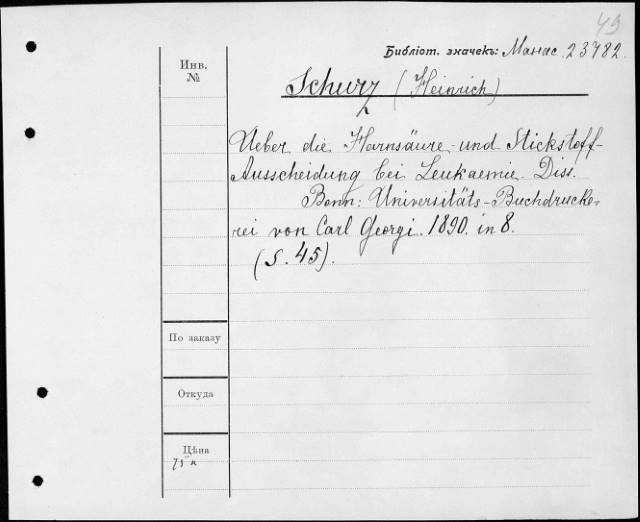 49
Библіот. значекъ: Манас. 23782.
Инв.
№
Schurz (Heinrich)
Ueber die Harnsäure- und Stickstoff-
Ausscheidung bei Leukaemie. Diss.
Bonn: Universitäts-Buchdrucke-
rei von Carl Georgi. 1890. in 8.
(S. 45).
По заказу
Откуда
Цѣна
75 к